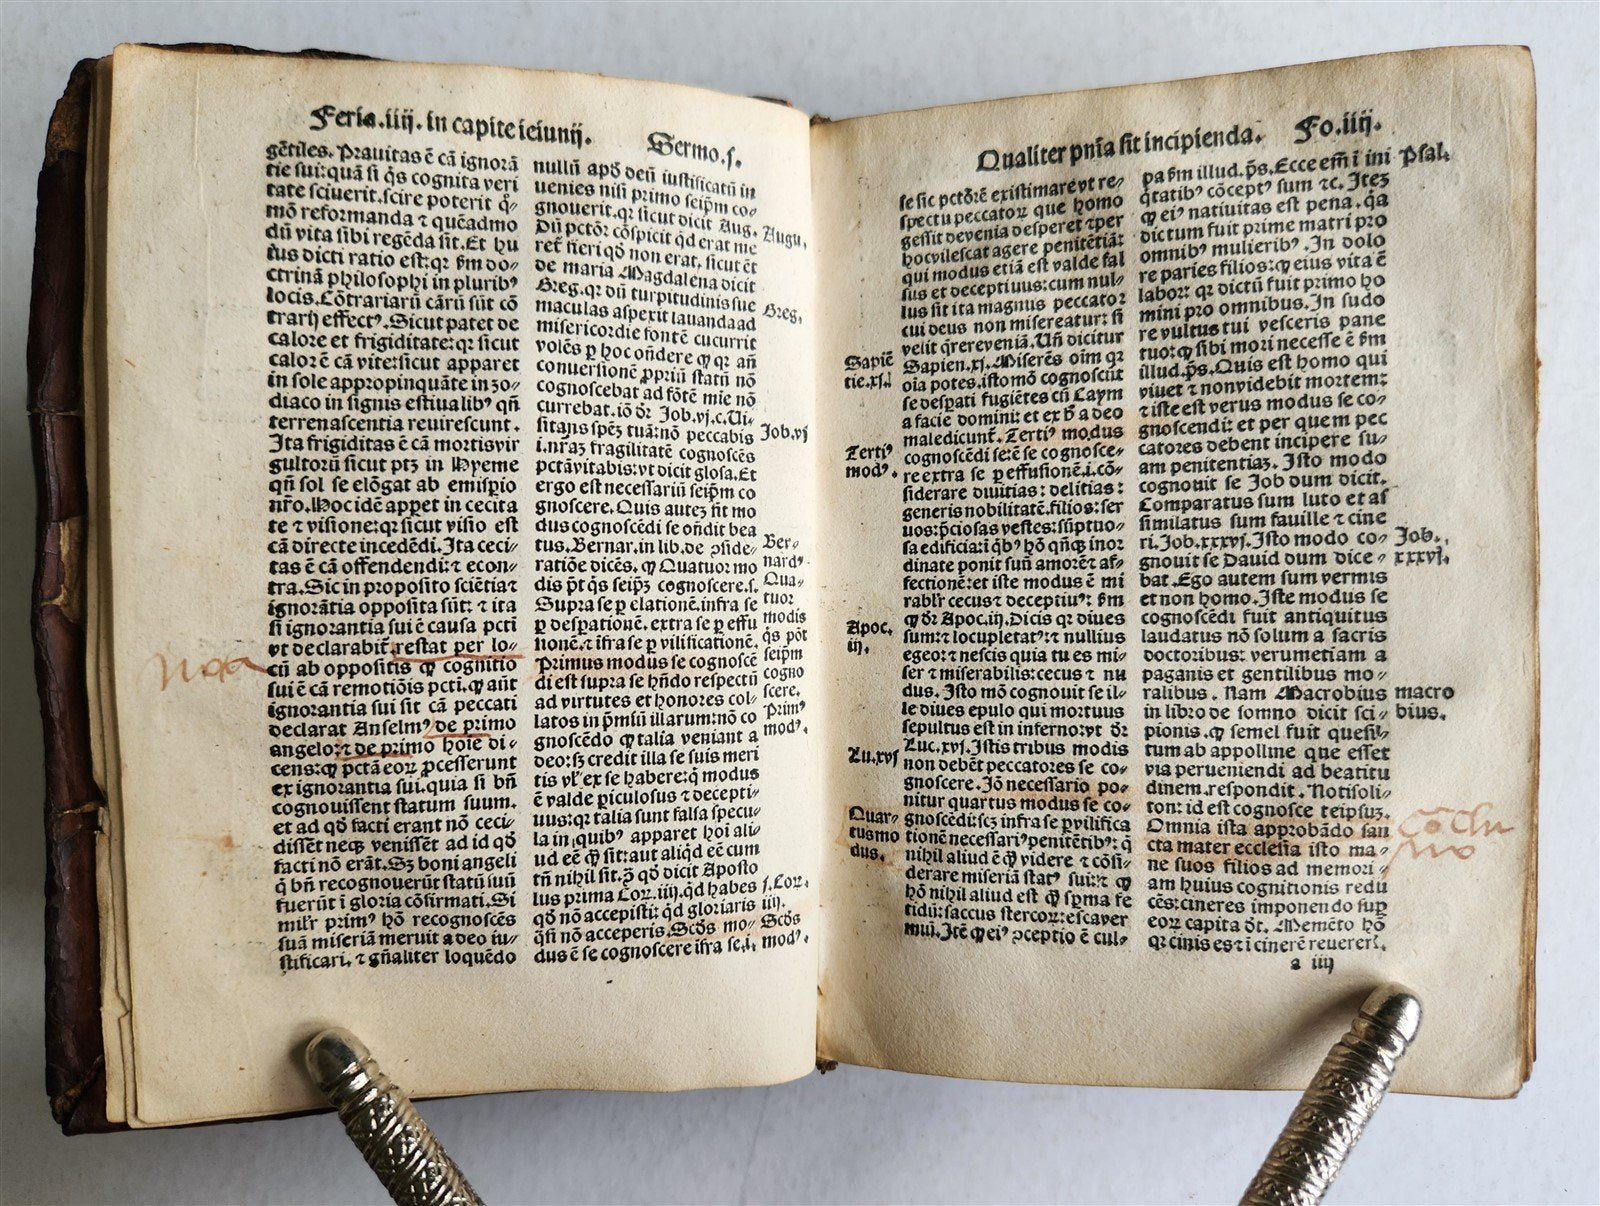 Feria.iiij. in capite ieiunij.
Sermo.j.
gẽtiles. Prauitas ẽ cã ignorã
tie sui: quã si q̃s cognita veri
tate sciuerit. scire poterit q̃-
mõ reformanda ⁊ quẽadmo
dũ vita sibi regẽda sit. Et hu
ius dicti ratio est: qr ẜm do-
ctrinã philosophi in pluribꝰ
locis. Cõtrariarũ cãrũ sũt cõ
trarij effectꝰ. Sicut patet de
calore et frigiditate: qr sicut
calor ẽ cã vite: sicut apparet
in sole appropinquãte in zo-
diaco in signis estiualibꝰ qñ
terrenascentia reuirescunt.
Ita frigiditas ẽ cã mortis vir
gultorũ sicut ptꝫ in Hyeme
qñ sol se elõgat ab emisperio
nr̃o. Hoc idẽ apꝑet in cecita
te ⁊ visione: qr sicut visio est
cã directe incedẽdi. Ita ceci-
tas ẽ cã offendendi: ⁊ econ-
tra. Sic in proposito sciẽtia ⁊
ignorãtia opposita sũt: ⁊ ita
si ignorantia sui ẽ causa pcti
vt declarabit̃. restat per lo-
cũ ab oppositis ꝙ cognitio
sui ẽ cã remotiõis pcti. ꝙ aũt
ignorantia sui sit cã peccati
declarat Anselmꝰ de primo
angelo: ⁊ de primo hoie di-
cens: ꝙ pctã eoꝝ ꝓcesserunt
ex ignorantia sui. quia si bñ
cognouissent statum suum.
et ad qð facti erant nõ ceci-
dissẽt neqꝫ venissẽt ad id qð
facti nõ erãt. Sꝫ boni angeli
q̃ bñ recognouerũt statũ suũ
fuerũt i gloria cõfirmati. Si
mil'r primꝰ hõ recognoscẽs
suã miseriã meruit a deo iu-
stificari. ⁊ gñaliter loquẽdo
nullũ apð deũ iustificatũ in
uenies nisi primo seip̃m co-
gnouerit. qr sicut dicit Aug.
Dũ pctõr cõspicit qð erat me
ret̃ fieri qð non erat, sicut ẽt
de maria Magdalena dicit
Greg. qr dũ turpitudinis sue
maculas aspexit lauanda ad
misericordie fontẽ cucurrit
volẽs ꝑ hoc oñdere ꝙ qr añ
conuersionẽ ꝓpriũ statũ nõ
cognoscebat ad fõtẽ mie nõ
currebat. iõ dr̃ Job.vj.c. Ui-
sitans spẽꝫ tuã: nõ peccabis
.i. nr̃aꝫ fragilitatẽ cognoscẽs
pctã vitabis: vt dicit glosa. Et
ergo est necessariũ seip̃m co
gnoscere. Quis autẽꝫ fit mo
dus cognoscẽdi se oñdit bea
tus. Bernar. in lib. de ꝯside-
ratiõe dicẽs. ꝙ Quatuor mo
dis põt q̃s seip̃ꝫ cognoscere. s.
Supra se ꝑ elationẽ. infra se
ꝑ desperationẽ. extra se ꝑ effu
sionẽ. ⁊ ifra se ꝑ vilificationẽ.
Primus modus se cognoscẽ
di est supra se hñdo respectũ
ad virtutes et honores col-
latos in p̃miũ illarum: nõ co
gnoscẽdo ꝙ talia veniant a
deo: sꝫ credit illa se suis meri
tis vl' ex se habere: q̃ modus
ẽ valde ꝑiculosus ⁊ decepti-
uus: qr talia sunt falsa specu-
la in quibꝰ apparet hoi ali-
ud eẽ ꝙ̃ sit: aut aliqð eẽ cum
tñ nihil sit. ꝫ̃ qð dicit Aposto
lus prima Coꝝ.iiij. qð habes
qð nõ accepisti: qð gloriaris
q̃si nõ acceperis. Scðs mo-
dus ẽ se cognoscere ifra se. i.
Augu.
Greg.
Job.vj
Ber-
nardꝰ
Qua-
tuor
modis
q̃s põt
seip̃m
cogno
scere.
Primꝰ
modꝰ.
j.Coꝝ.
iiij.
Scðs
modꝰ.
noa
Qualiter pnĩa sit incipienda.
Fo.iiij.
se sic pctõrẽ existimare vt re-
spectu peccatoꝝ que homo
gessit de venia desperet ⁊ per
hoc vilescat agere penitẽtiã:
qui modus etiã est valde fal
sus et deceptiuus: cum nul-
lus sit ita magnus peccator
cui deus non misereatur: si
velit q̃rere veniã. Uñ dicitur
Sapien.xj. Miserẽs oĩm qr
oĩa potes. isto mõ cognoscũt
se desꝑati fugiẽtes cũ Caym
a facie domini: et ex ħ a deo
maledicunt̃. Tertiꝰ modus
cognoscẽdi se: ẽ se cognosce-
re extra se ꝑ effusionẽ. i. cõ-
siderare diuitias: delitias:
generis nobilitatẽ. filios: ser
uos: p̃ciosas vestes: sũptuo-
sa edificia: i q̃bꝰ hõ qñqꝫ inor
dinate ponit suũ amorẽ ⁊ af-
fectionẽ: et iste modus ẽ mi
rabl'r cecus ⁊ deceptiuꝰ: ẜm
ꝙ dr̃ Apoc.iij. Dicis qr diues
sum: ⁊ locupletatꝰ: ⁊ nullius
egeo: ⁊ nescis quia tu es mi-
ser ⁊ miserabilis: cecus ⁊ nu
dus. Isto mõ cognouit se il-
le diues epulo qui mortuus
sepultus est in inferno: vt dr̃
Luc.xvj. Istis tribus modis
non debẽt peccatores se co-
gnoscere. Jõ necessario po-
nitur quartus modus se co-
gnoscẽdi: scꝫ infra se ꝑ vilifica
tionẽ necessariꝰ penitẽtibꝰ: q̃
nihil aliud ẽ ꝙ̃ videre ⁊ cõsi-
derare miseriã statꝰ sui: ⁊ ꝙ
hõ nihil aliud est ꝙ̃ sꝑma fe
tidũ: saccus stercoꝝ: esca ver
miũ. Itẽ ꝙ eiꝰ ꝯceptio ẽ cul-
Sapiẽ
tie.xj.
Tertiꝰ
modꝰ.
Apoc.
iij.
Lu.xvj
Quar-
tus mo
dus.
pa ẜm illud. p̃s. Ecce em̃ i ini
q̃tatibꝰ cõceptꝰ sum ⁊c. Iteꝫ
ꝙ eiꝰ natiuitas est pena. q̃a
dictum fuit prime matri pro
omnibꝰ mulieribꝰ. In dolo
re paries filios: ꝙ eius vita ẽ
labor: qr dictũ fuit primo ho
mini pro omnibus. In sudo
re vultus tui vesceris pane
tuo: ꝙ sibi mori necesse ẽ ẜm
illud. p̃s. Quis est homo qui
viuet ⁊ non videbit mortem:
⁊ iste est verus modus se co-
gnoscendi: et per quem pec
catores debent incipere su-
am penitentiaꝫ. Isto modo
cognouit se Job dum dicit.
Comparatus sum luto et as
similatus sum fauille ⁊ cine
ri. Job.xxxvj. Isto modo co-
gnouit se Dauid dum dice-
bat. Ego autem sum vermis
et non homo. Iste modus se
cognoscẽdi fuit antiquitus
laudatus nõ solum a sacris
doctoribus: verumetiam a
paganis et gentilibus mo-
ralibus. Nam Macrobius
in libro de somno dicit sci-
pionis. ꝙ semel fuit quesi-
tum ab appolline que esset
via perueniendi ad beatitu
dinem. respondit. Notisoli-
ton: id est cognosce teipsuꝫ.
Omnia ista approbãdo san
cta mater ecclesia isto ma-
ne suos filios ad memori-
am huius cognitionis redu
cẽs: cineres imponendo suꝑ
eoꝝ capita dt̃. Memẽto hõ
qr cinis es ⁊ i cinerẽ reuerer̃.
Psal.
Job.
xxxvj.
macro
bius.
a iiij